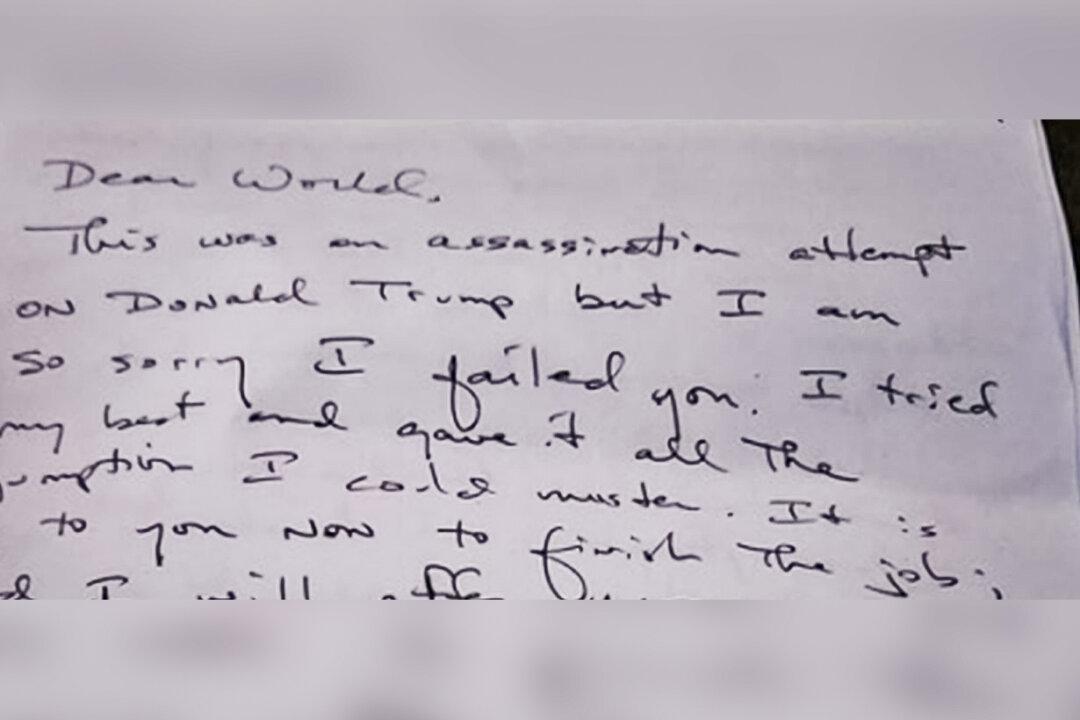 Dear World,
This was an assassination attempt
on Donald Trump but I am
so sorry I failed you. I tried
my best and gave it all the
gumption I could muster. It is
to you now to finish the job;
I will